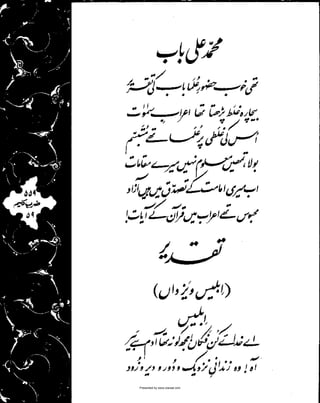 محمد علی باب
تھی خوب حضورِ علما باب کی تقریر
بیچارہ غلط پڑھتا تھا اعرابِ سمٰوات
اس کی غلطی پر علما تھے متبسّم
بولا، تمھیں معلوم نہیں میرے مقامات
اب میری امامت کے تصدّق میں ہیں آزاد
محبوس تھے اعراب میں قرآن کے آیات!
تقدیر
(ابلیس و یزداں)
ابلیس
اے خدائے کُن فکاں! مجھ کو نہ تھا آدم سے بیر
آہ! وہ زندانیِ نزدیک و دور و دیر و زود
۵۵۹
ضربِ کلیم
۵۹
Presented by www.ziaraat.com